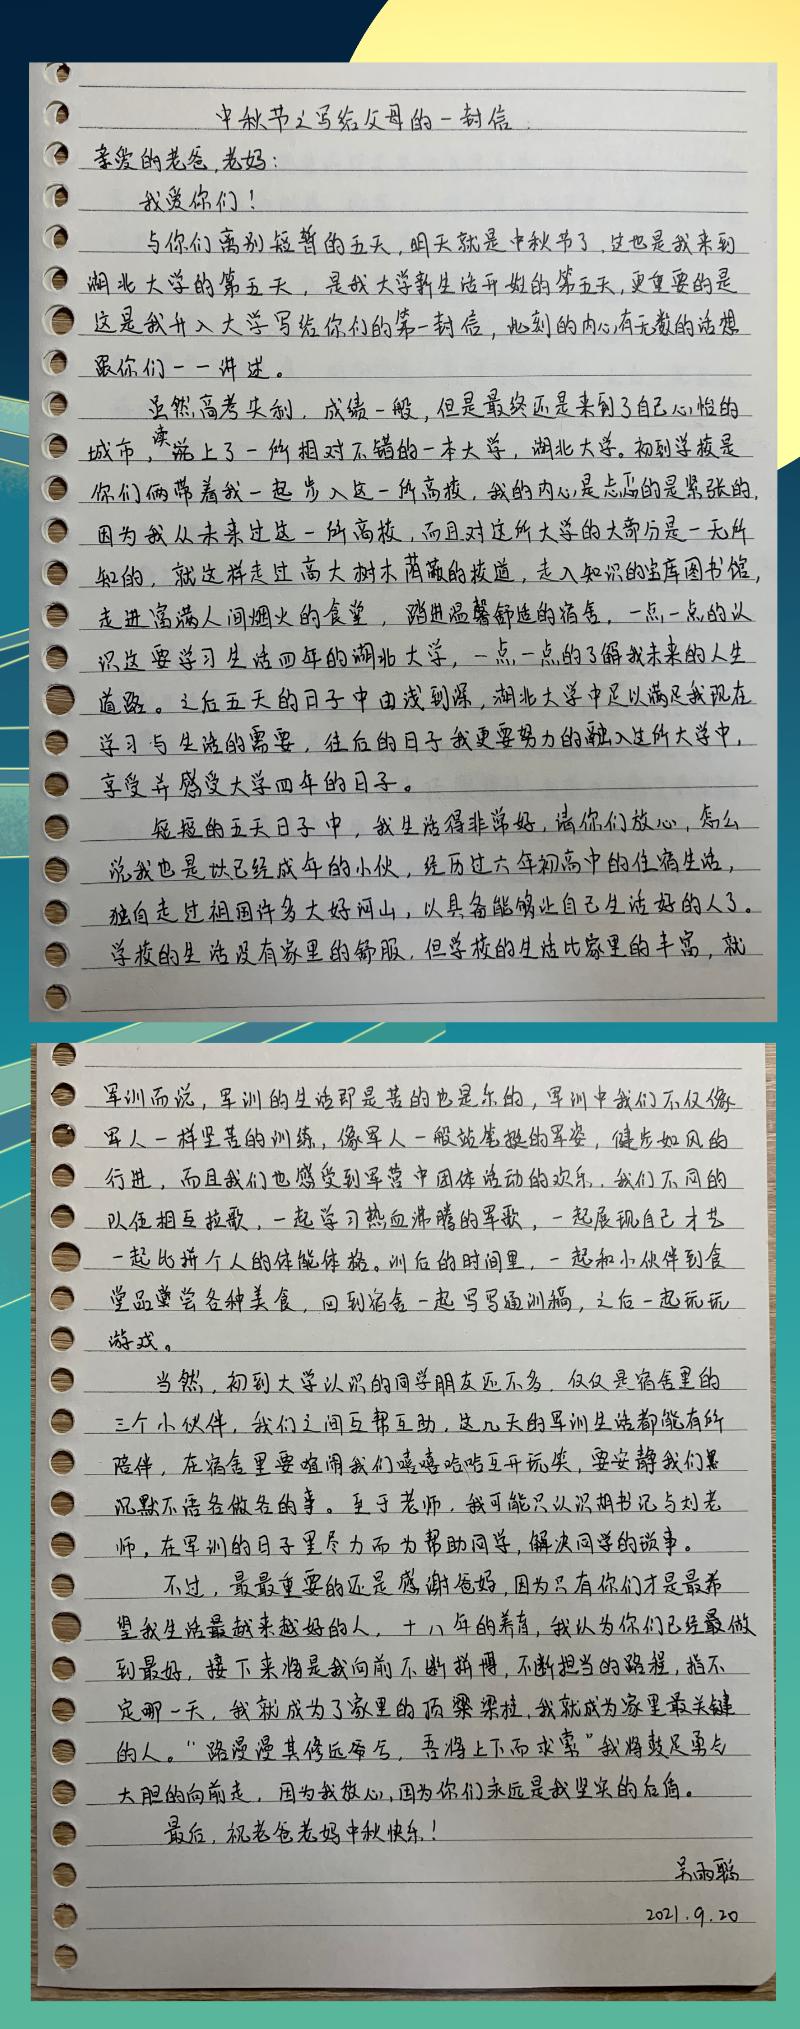 中秋节之写给父母的一封信
亲爱的老爸,老妈:
我爱你们!
与你们离别短暂的五天,明天就是中秋节了,这也是我来到
湖北大学的第五天,是我大学新生活开始的第五天,更重要的是
这是我升入大学写给你们的第一封信,此刻的内心有无数的话想
跟你们一一讲述。
虽然高考失利,成绩一般,但是最终还是来到了自己心怡的
城市,读上了一所相对不错的一本大学,湖北大学。初到学校是
你们俩带着我一起步入这一所高校,我的内心是忐忑的是紧张的,
因为我从未来过这一所高校,而且对这所大学的大部分是一无所
知的,就这样走过高大树木荫蔽的校道,走入知识的宝库图书馆,
走进富满人间烟火的食堂,踏进温馨舒适的宿舍,一点一点的认
识这要学习生活四年的湖北大学,一点一点的了解我未来的人生
道路。之后五天的日子中由浅到深,湖北大学中足以满足我现在
学习与生活的需要,往后的日子我更要努力的融入这所大学中,
享受并感受大学四年的日子。
短短的五天日子中,我生活得非常好,请你们放心,怎么
说我也是已经成年的小伙,经历过六年初高中的住宿生活,
独自走过祖国许多大好河山,以具备能够让自己生活好的人了。
学校的生活没有家里的舒服,但学校的生活比家里的丰富,就
军训而说,军训的生活即是苦的也是乐的,军训中我们不仅像
军人一样坚苦的训练,像军人一般站笔挺的军姿,健步如风的
行进,而且我们也感受到军营中团体活动的欢乐,我们不同的
队伍相互拉歌,一起学习热血沸腾的军歌,一起展现自己才艺
一起比拼个人的体能体格。训后的时间里,一起和小伙伴到食
堂品尝各种美食,回到宿舍一起写写通训稿,之后一起玩玩
游戏。
当然,初到大学认识的同学朋友还不多,仅仅是宿舍里的
三个小伙伴,我们之间互帮互助,这几天的军训生活都能有所
陪伴,在宿舍里要喧闹我们嘻嘻哈哈互开玩笑,要安静我们
沉默不语各做各的事。至于老师,我可能只认识胡书记与刘老
师,在军训的日子里尽力而为帮助同学,解决同学的琐事。
不过,最最重要的还是感谢爸妈,因为只有你们才是最希
望我生活最越来越好的人,十八年的养育,我认为你们已经最做
到最好,接下来将是我向前不断拼搏,不断担当的路程,指不
定哪一天,我就成为了家里的顶梁梁柱,我就成为家里最关键
的人。“路漫漫其修远兮,吾将上下而求索”我将鼓足勇气
大胆的向前走,因为我放心,因为你们永远是我坚实的后盾。
最后,祝老爸老妈中秋快乐!
吴雨聪
2021.9.20